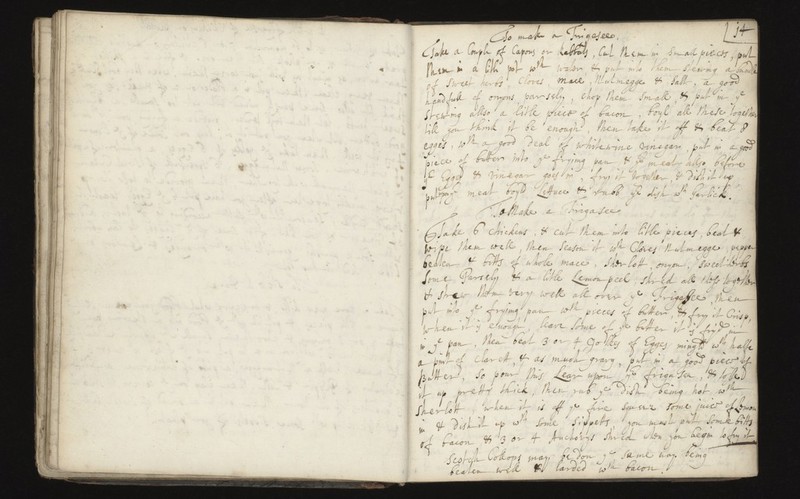 14
To mak a Frigasee.
Take a Couple of Capons or Rabbits, Cut them in small pieces, put
them in a litle pot wth water & put into them stewing a handfull
of sweet herbs, Cloves mace, Nutmegge & salt, a good
handfull of onyons, parsely, chop them small & put in ye
stewing allso a litle piece of bacon, boyl all these together
till you think it be enough, then take it off & beat 8
egges, wth a good deal of whitewine vinegar, put in a good
piece of butter into ye frying pan & ye meat also, before
ye Egges & vinegar goes in, fry it & Dish it up
meat boyld Lettuce & rub ye dish wth Garlick.
To Make a Frigasee
Take 6 chickins, & cut them into litle pieces, beat &
wipe them well, then season it wth Cloves Nutmegge, pepper
beaten & bitts of whole mace, Sherlott, onyon, sweet herbs
some Parsely & a litle Lemon peel, shred all these together
& strew them very well all over ye Frigasee, then
put into ye frying pan wth pieces of butter & fry it Crisp,
when it is enough, leave some of ye butter it is fryd
in ye pan, then beat 3 or 4 yolkes of Egges mingd wth halfe
a pint of Claret & as much gravy, put in a good piece of
Butter, so pour this Lear upon ye frigasee, & tosse
it up pretty thick, then rub ye dish being hot wth
Sherlott, when it is off ye fire squeeze some juice of Lemon
in & dish it up wth some Sippets, you must put some bitts
of bacon & 3 or 4 Anchovys shred when you begin to fry it
Scotch Collops may be don ye same way being
beaten well & larded wth bacon.